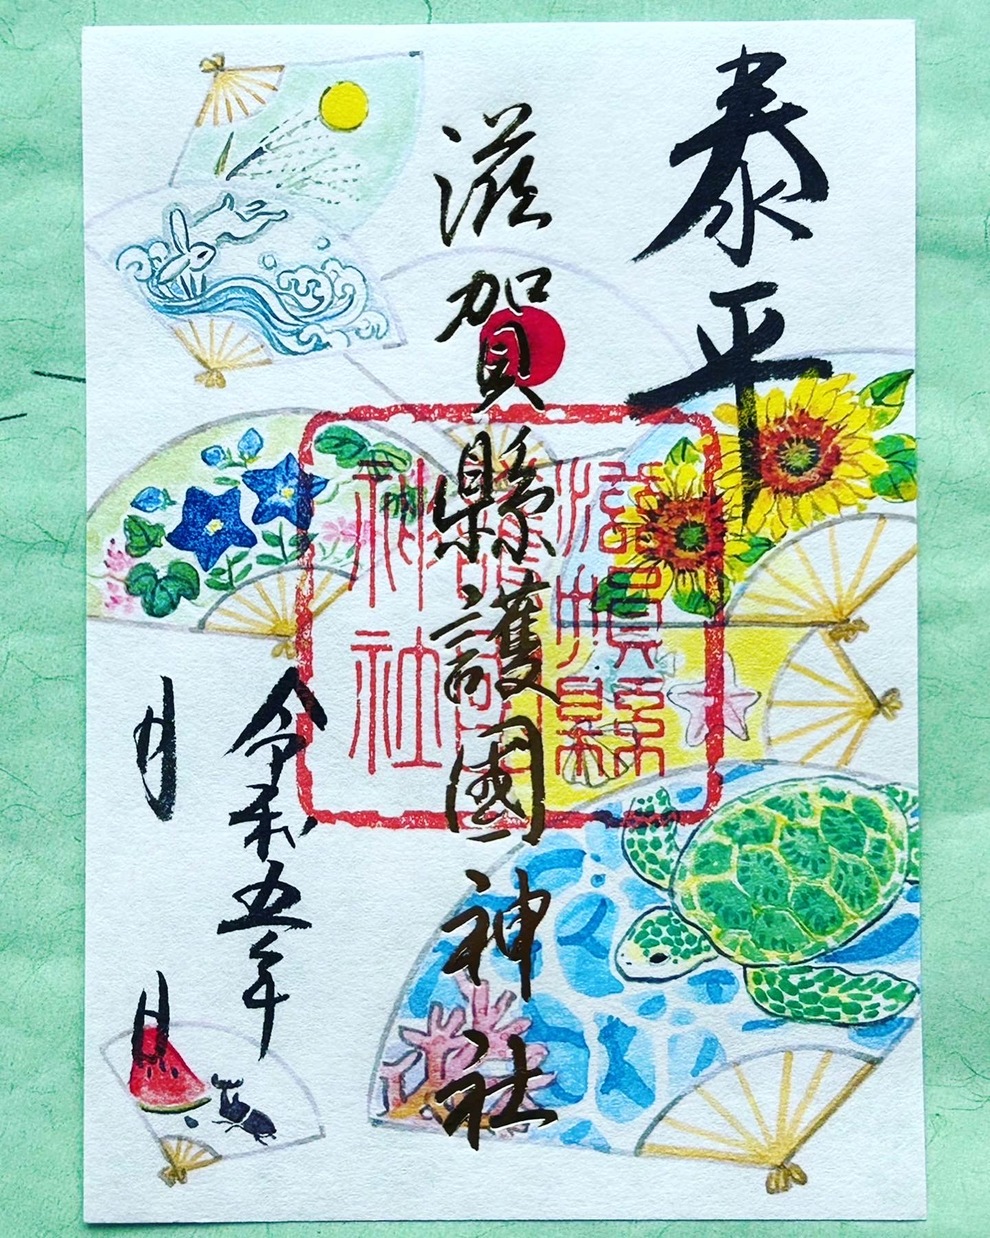 泰平
滋賀縣護國神社
滋賀縣
護國
神社
令和五年
月
日